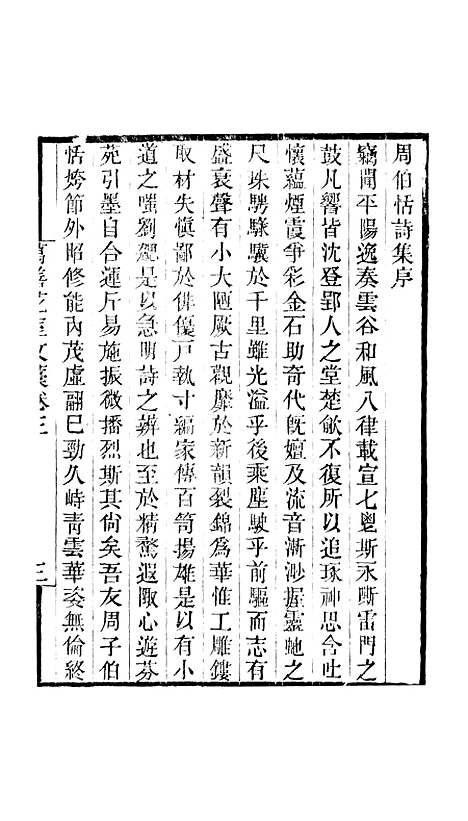 周伯恬詩集序
竊聞平陽逸奏雲谷和風八律載宣七鬯斯永斷雷門之
鼓凡響皆沈登郢人之堂楚歈不復所以追琢神思含吐
懷蘊煙霞爭彩金石助奇代旣嬗及流音漸渺握靈虵之
尺珠騁騄驥於千里雖光溢乎後乘塵駛乎前驅而志有
盛衰聲有小大陋厥古觀靡於新韻裂錦爲華惟工雕鏤
取材失愼鄙於俳優戸執寸編家傳百笥揚雄是以有小
道之嗤劉勰是以急明詩之辨也至於精騖遐陬心遊芬
苑引墨自合運斤易施振微播烈斯其尙矣吾友周子伯
恬姱節外昭修能內茂虛翮已勁久峙靑雲華姿無倫終
萬善花室文藁卷三
三